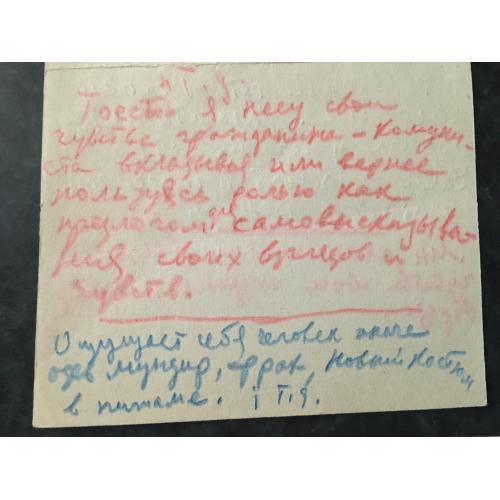 То есть я несу свои
чувства гражданина - комуни-
ста вкладывая или вернее
пользуясь ролью как
предлогом для самовысказыва-
ния своих взглядов и
чувств.
Ощущает себя человек иначе
одев мундир, фрак, новый костюм
в пижаме. і т.д.